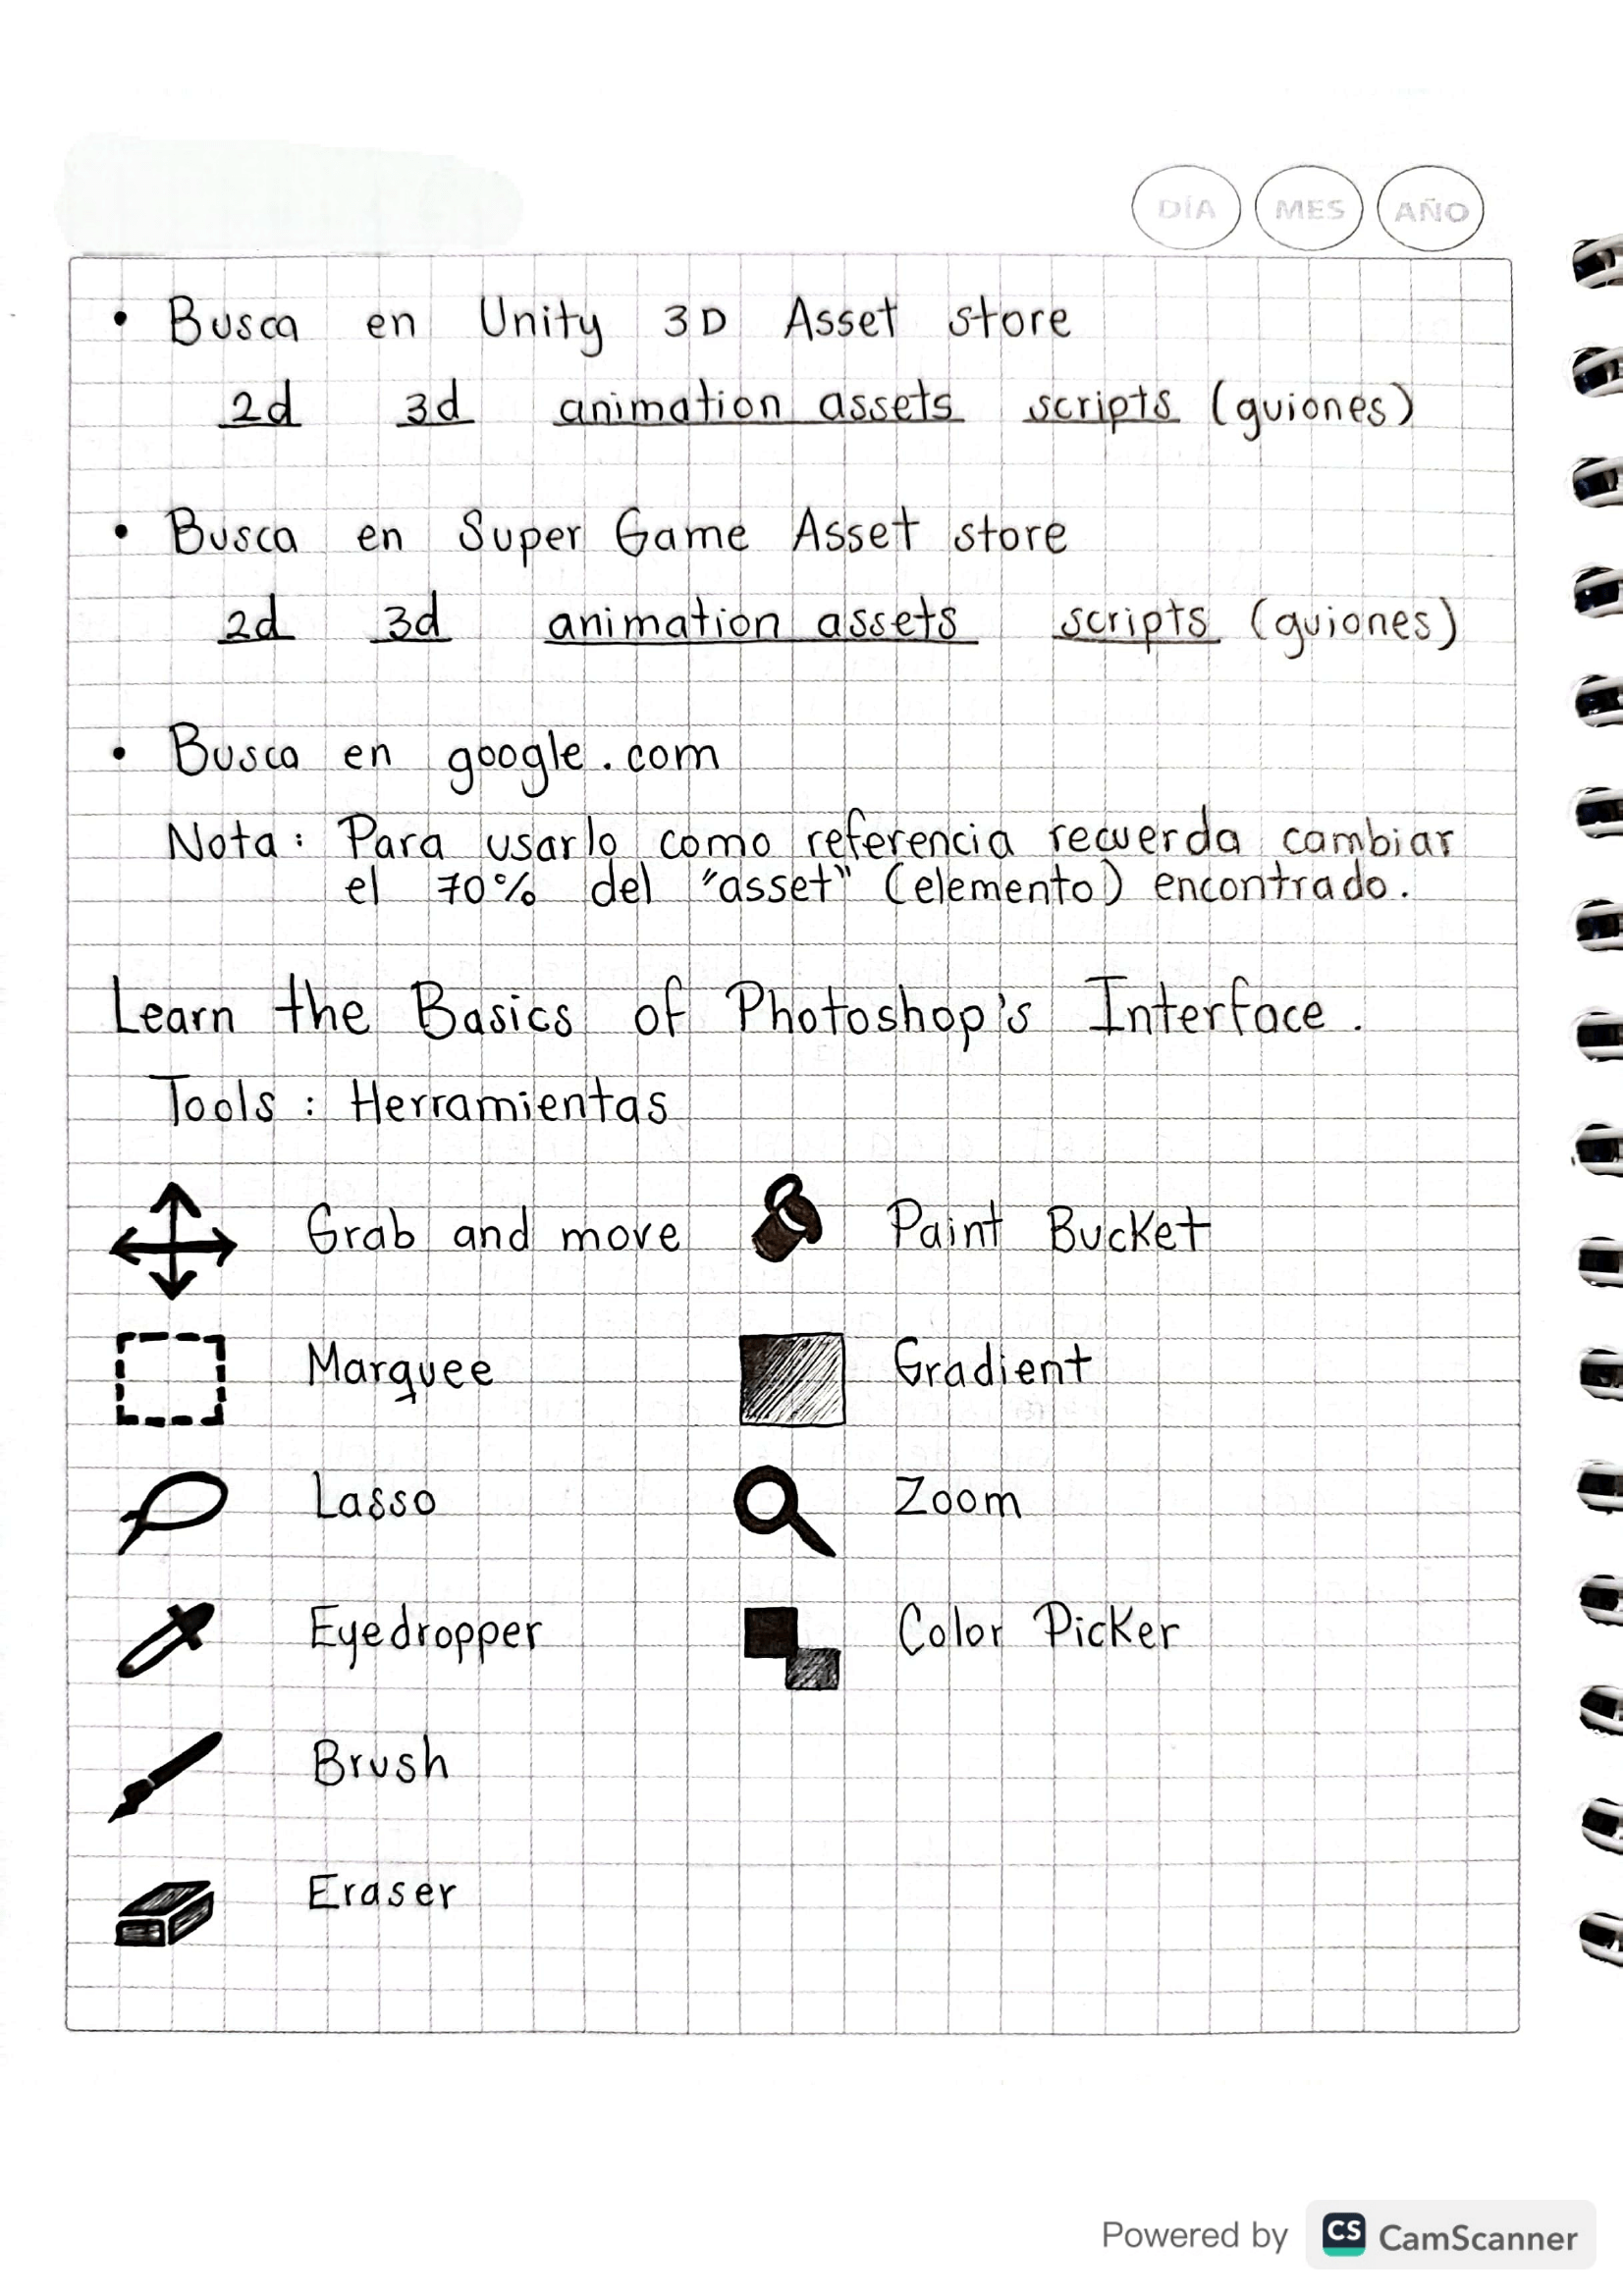 DÍA MES AÑO
• Busca en Unity 3D Asset store
2d 3d animation assets scripts (guiones)
• Busca en Super Game Asset store
2d 3d animation assets scripts (guiones)
• Busca en google.com
Nota: Para usarlo como referencia recuerda cambiar
el 70% del "asset" (elemento) encontrado.
Learn the Basics of Photoshop's Interface.
Tools: Herramientas
Grab and move Paint Bucket
Marquee Gradient
Lasso Zoom
Eyedropper Color Picker
Brush
Eraser
Powered by CS CamScanner